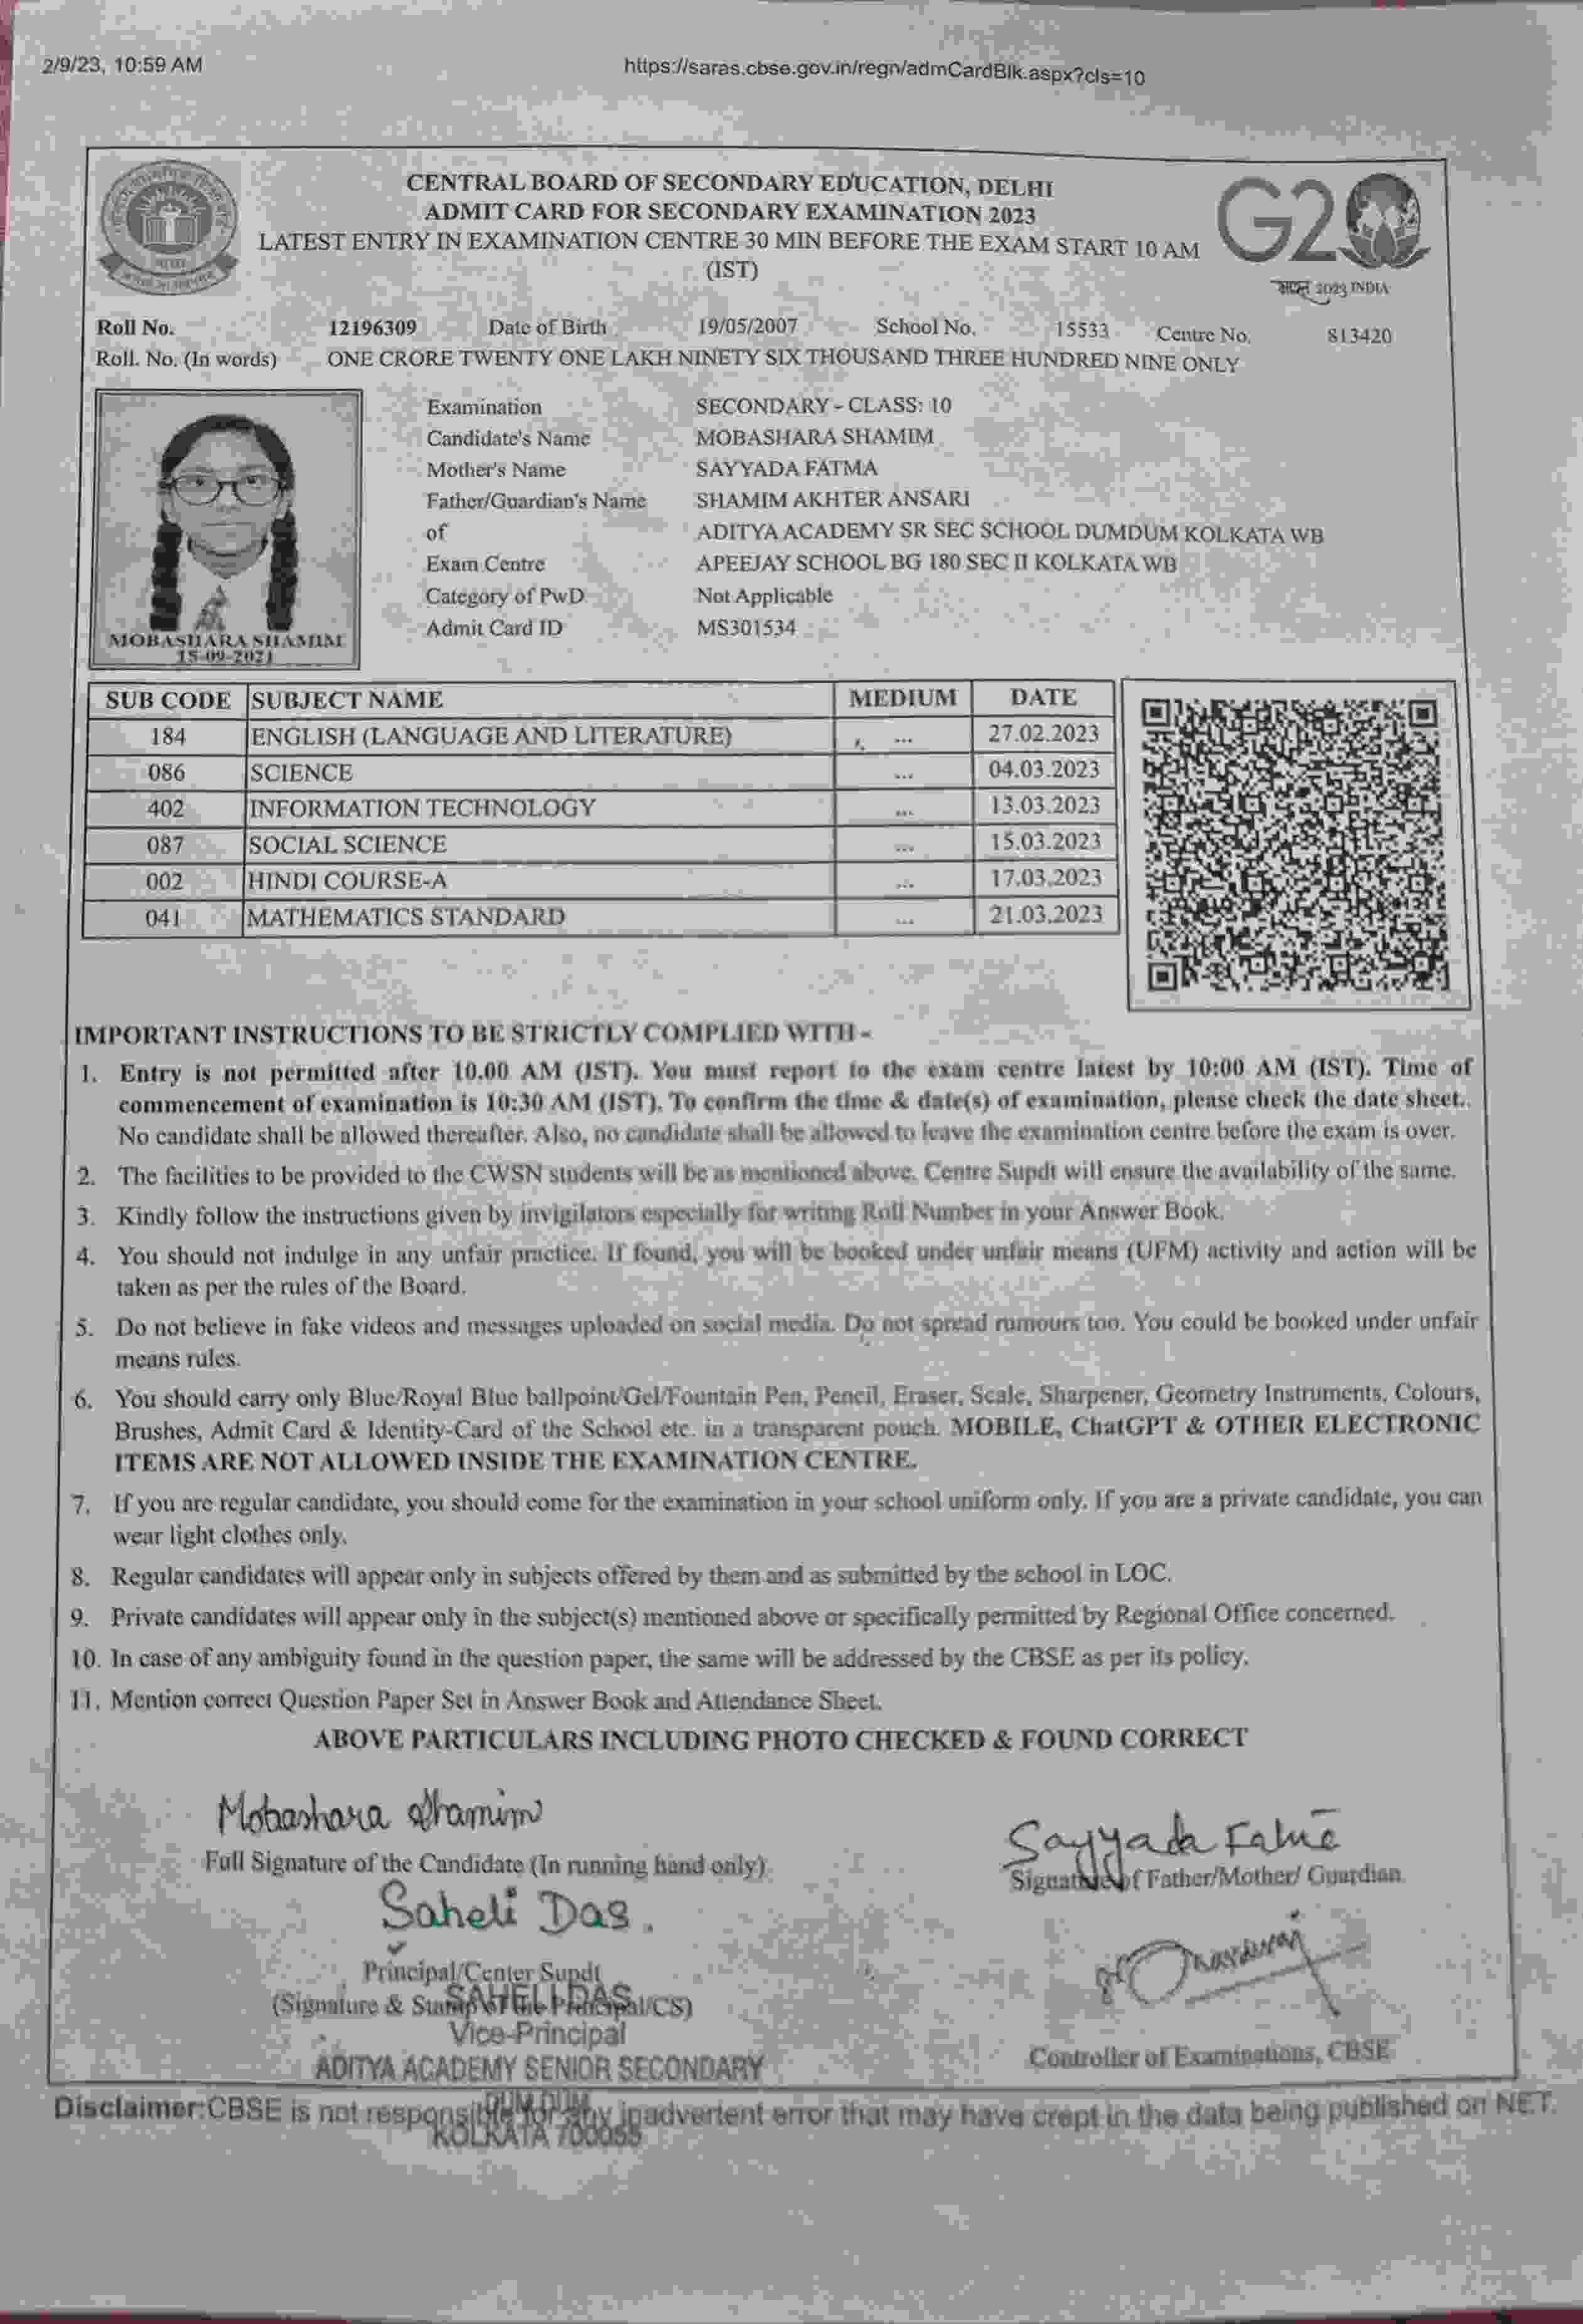 2/9/23, 10:59 AM
https://saras.cbse.gov.in/regn/admCardBlk.aspx?cls=10
CENTRAL BOARD OF SECONDARY EDUCATION, DELHI
ADMIT CARD FOR SECONDARY EXAMINATION 2023
LATEST ENTRY IN EXAMINATION CENTRE 30 MIN BEFORE THE EXAM START 10 AM
(IST)
G20
2023 INDIA
Roll No. 12196309 Date of Birth 19/05/2007 School No. 15533 Centre No. 813420
Roll. No. (In words) ONE CRORE TWENTY ONE LAKH NINETY SIX THOUSAND THREE HUNDRED NINE ONLY
Examination SECONDARY - CLASS: 10
Candidate's Name MOBASHARA SHAMIM
Mother's Name SAYYADA FATMA
Father/Guardian's Name SHAMIM AKHTER ANSARI
of ADITYA ACADEMY SR SEC SCHOOL DUMDUM KOLKATA WB
Exam Centre APEEJAY SCHOOL BG 180 SEC II KOLKATA WB
Category of PwD Not Applicable
Admit Card ID MS301534
MOBASHARA SHAMIM
15-09-2021
SUB CODE SUBJECT NAME MEDIUM DATE
184 ENGLISH (LANGUAGE AND LITERATURE) --- 27.02.2023
086 SCIENCE --- 04.03.2023
402 INFORMATION TECHNOLOGY --- 13.03.2023
087 SOCIAL SCIENCE --- 15.03.2023
002 HINDI COURSE-A --- 17.03.2023
041 MATHEMATICS STANDARD --- 21.03.2023
IMPORTANT INSTRUCTIONS TO BE STRICTLY COMPLIED WITH -
1. Entry is not permitted after 10.00 AM (IST). You must report to the exam centre latest by 10:00 AM (IST). Time of
commencement of examination is 10:30 AM (IST). To confirm the time & date(s) of examination, please check the date sheet.
No candidate shall be allowed thereafter. Also, no candidate shall be allowed to leave the examination centre before the exam is over.
2. The facilities to be provided to the CWSN students will be as mentioned above. Centre Supdt will ensure the availability of the same.
3. Kindly follow the instructions given by invigilators especially for writing Roll Number in your Answer Book.
4. You should not indulge in any unfair practice. If found, you will be booked under unfair means (UFM) activity and action will be
taken as per the rules of the Board.
5. Do not believe in fake videos and messages uploaded on social media. Do not spread rumours too. You could be booked under unfair
means rules.
6. You should carry only Blue/Royal Blue ballpoint/Gel/Fountain Pen, Pencil, Eraser, Scale, Sharpener, Geometry Instruments, Colours,
Brushes, Admit Card & Identity-Card of the School etc. in a transparent pouch. MOBILE, ChatGPT & OTHER ELECTRONIC
ITEMS ARE NOT ALLOWED INSIDE THE EXAMINATION CENTRE.
7. If you are regular candidate, you should come for the examination in your school uniform only. If you are a private candidate, you can
wear light clothes only.
8. Regular candidates will appear only in subjects offered by them and as submitted by the school in LOC.
9. Private candidates will appear only in the subject(s) mentioned above or specifically permitted by Regional Office concerned.
10. In case of any ambiguity found in the question paper, the same will be addressed by the CBSE as per its policy.
11. Mention correct Question Paper Set in Answer Book and Attendance Sheet.
ABOVE PARTICULARS INCLUDING PHOTO CHECKED & FOUND CORRECT
Mobashara Shamim
Full Signature of the Candidate (In running hand only)
Sayyada
Signature of Father/Mother/ Guardian
Saheli Das.
Principal/Center Supdt
(Signature & Stamp of the Principal/CS)
SAHELI DAS
Vice-Principal
ADITYA ACADEMY SENIOR SECONDARY
DUM DUM
KOLKATA 700055
Controller of Examinations, CBSE
Disclaimer:CBSE is not responsible for any inadvertent error that may have crept in the data being published on NET.